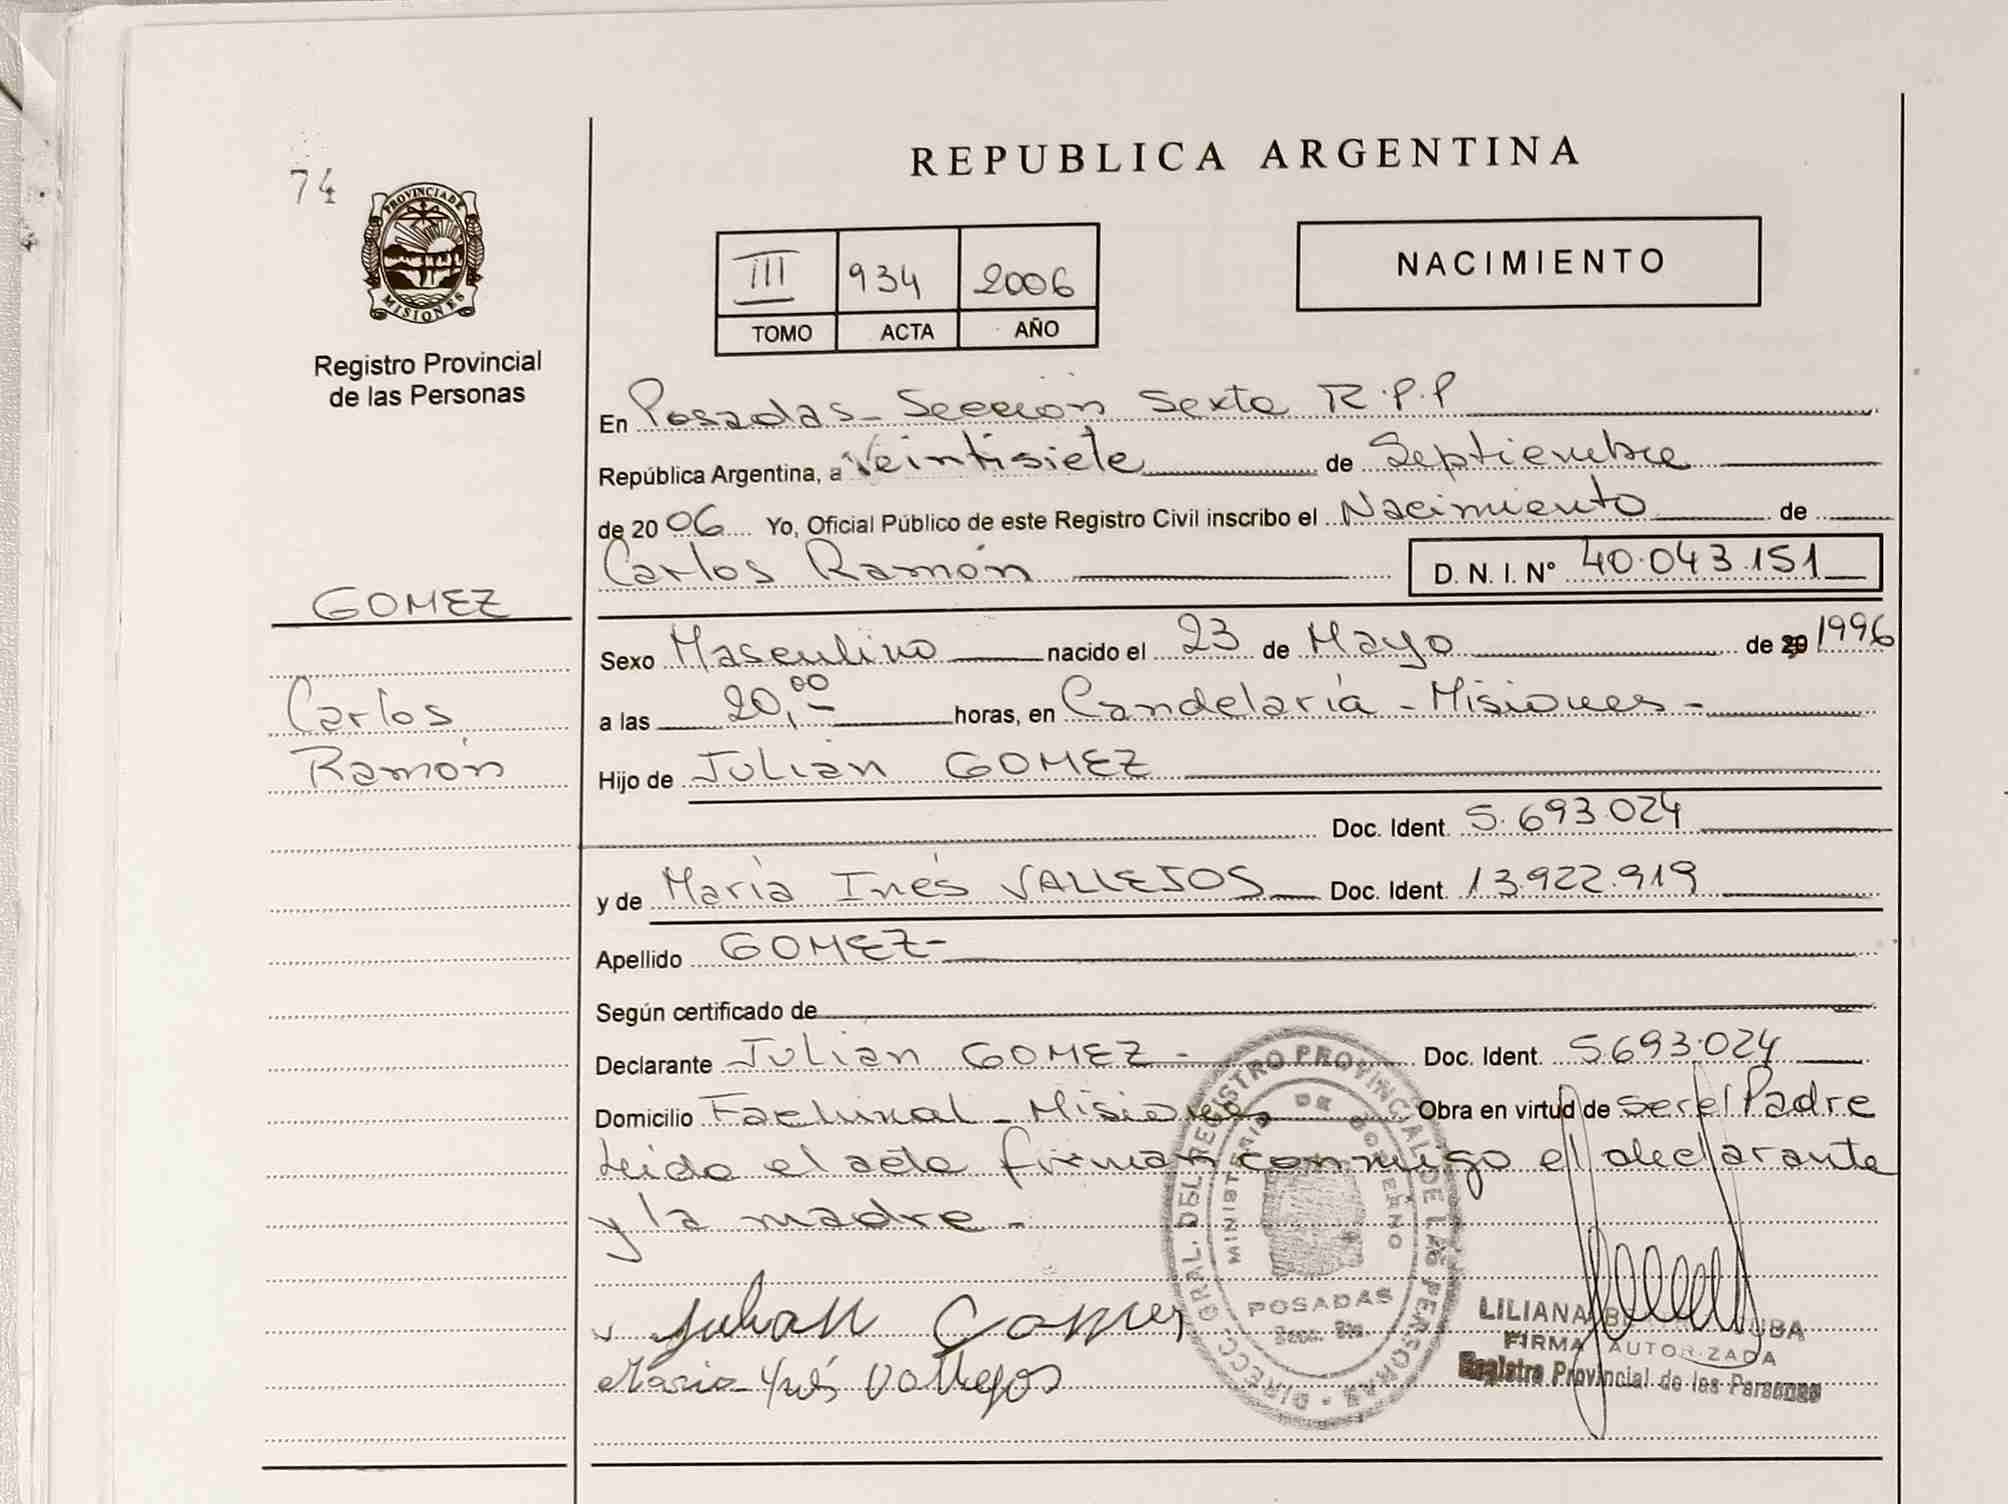 74
PROVINCIA DE
MISIONES
Registro Provincial
de las Personas
REPUBLICA ARGENTINA
III 934 2006
TOMO ACTA AÑO
NACIMIENTO
En Posadas - Sección Sexta R.P.P
República Argentina, a Veintisiete de Septiembre
de 2006 Yo, Oficial Público de este Registro Civil inscribo el Nacimiento de
Carlos Ramón D. N. I. N° 40.043.151
GOMEZ
Carlos
Ramón
Sexo Masculino nacido el 23 de Mayo de 20 1996
a las 20,00 horas, en Candelaria - Misiones -
Hijo de Julián GOMEZ
Doc. Ident. 5.693.024
y de María Inés VALLEJOS Doc. Ident. 13.922.919
Apellido GOMEZ-
Según certificado de
Declarante Julián GOMEZ - Doc. Ident. 5693.024
Domicilio Fachinal - Misiones Obra en virtud de ser el Padre
Leido el acta firman conmigo el declarante
y la madre -
Julian Gomez
Maria Inés Vallejos
DIRECC. GRAL. DEL REGISTRO PROVINCIAL DE LAS PERSONAS
MINISTERIO DE GOBIERNO
POSADAS
Secc. 6ta.
LILIANA
FIRMA AUTORIZADA
Registro Provincial de las Personas